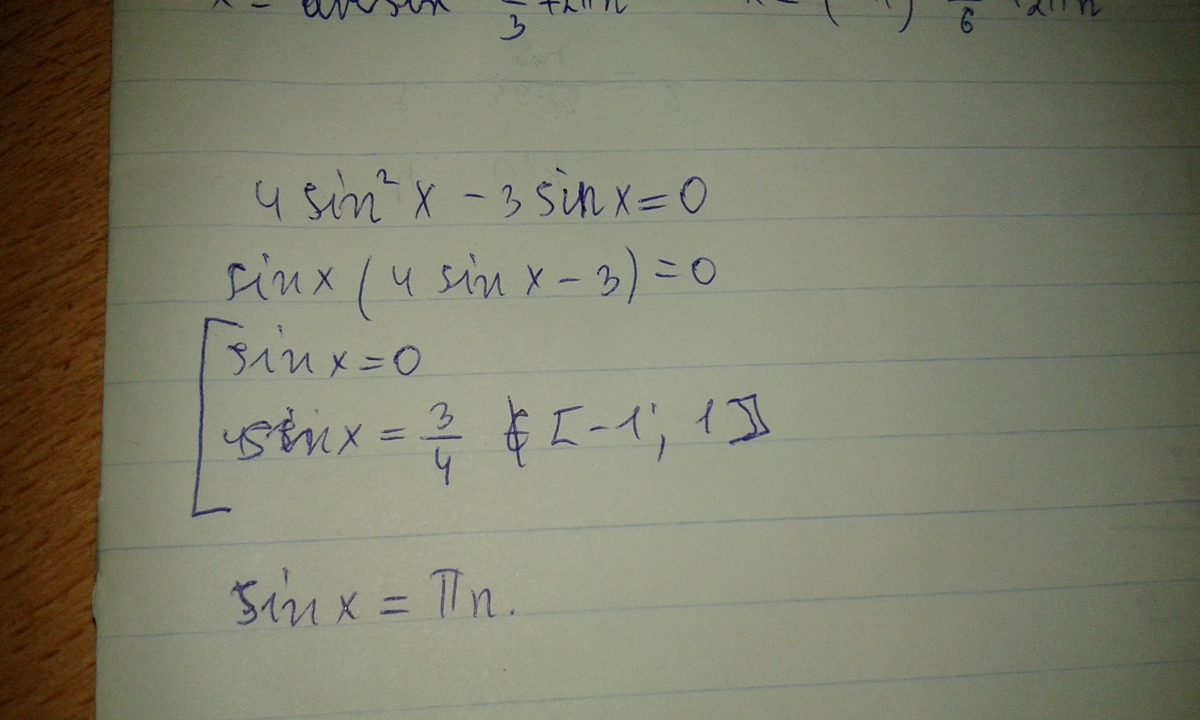 x = arcsin 3 + 2πn
6
4 sin² x - 3 sin x = 0
sin x (4 sin x - 3) = 0
[ sin x = 0
4sin x = 3/4 ∉ [-1; 1]
sin x = πn.